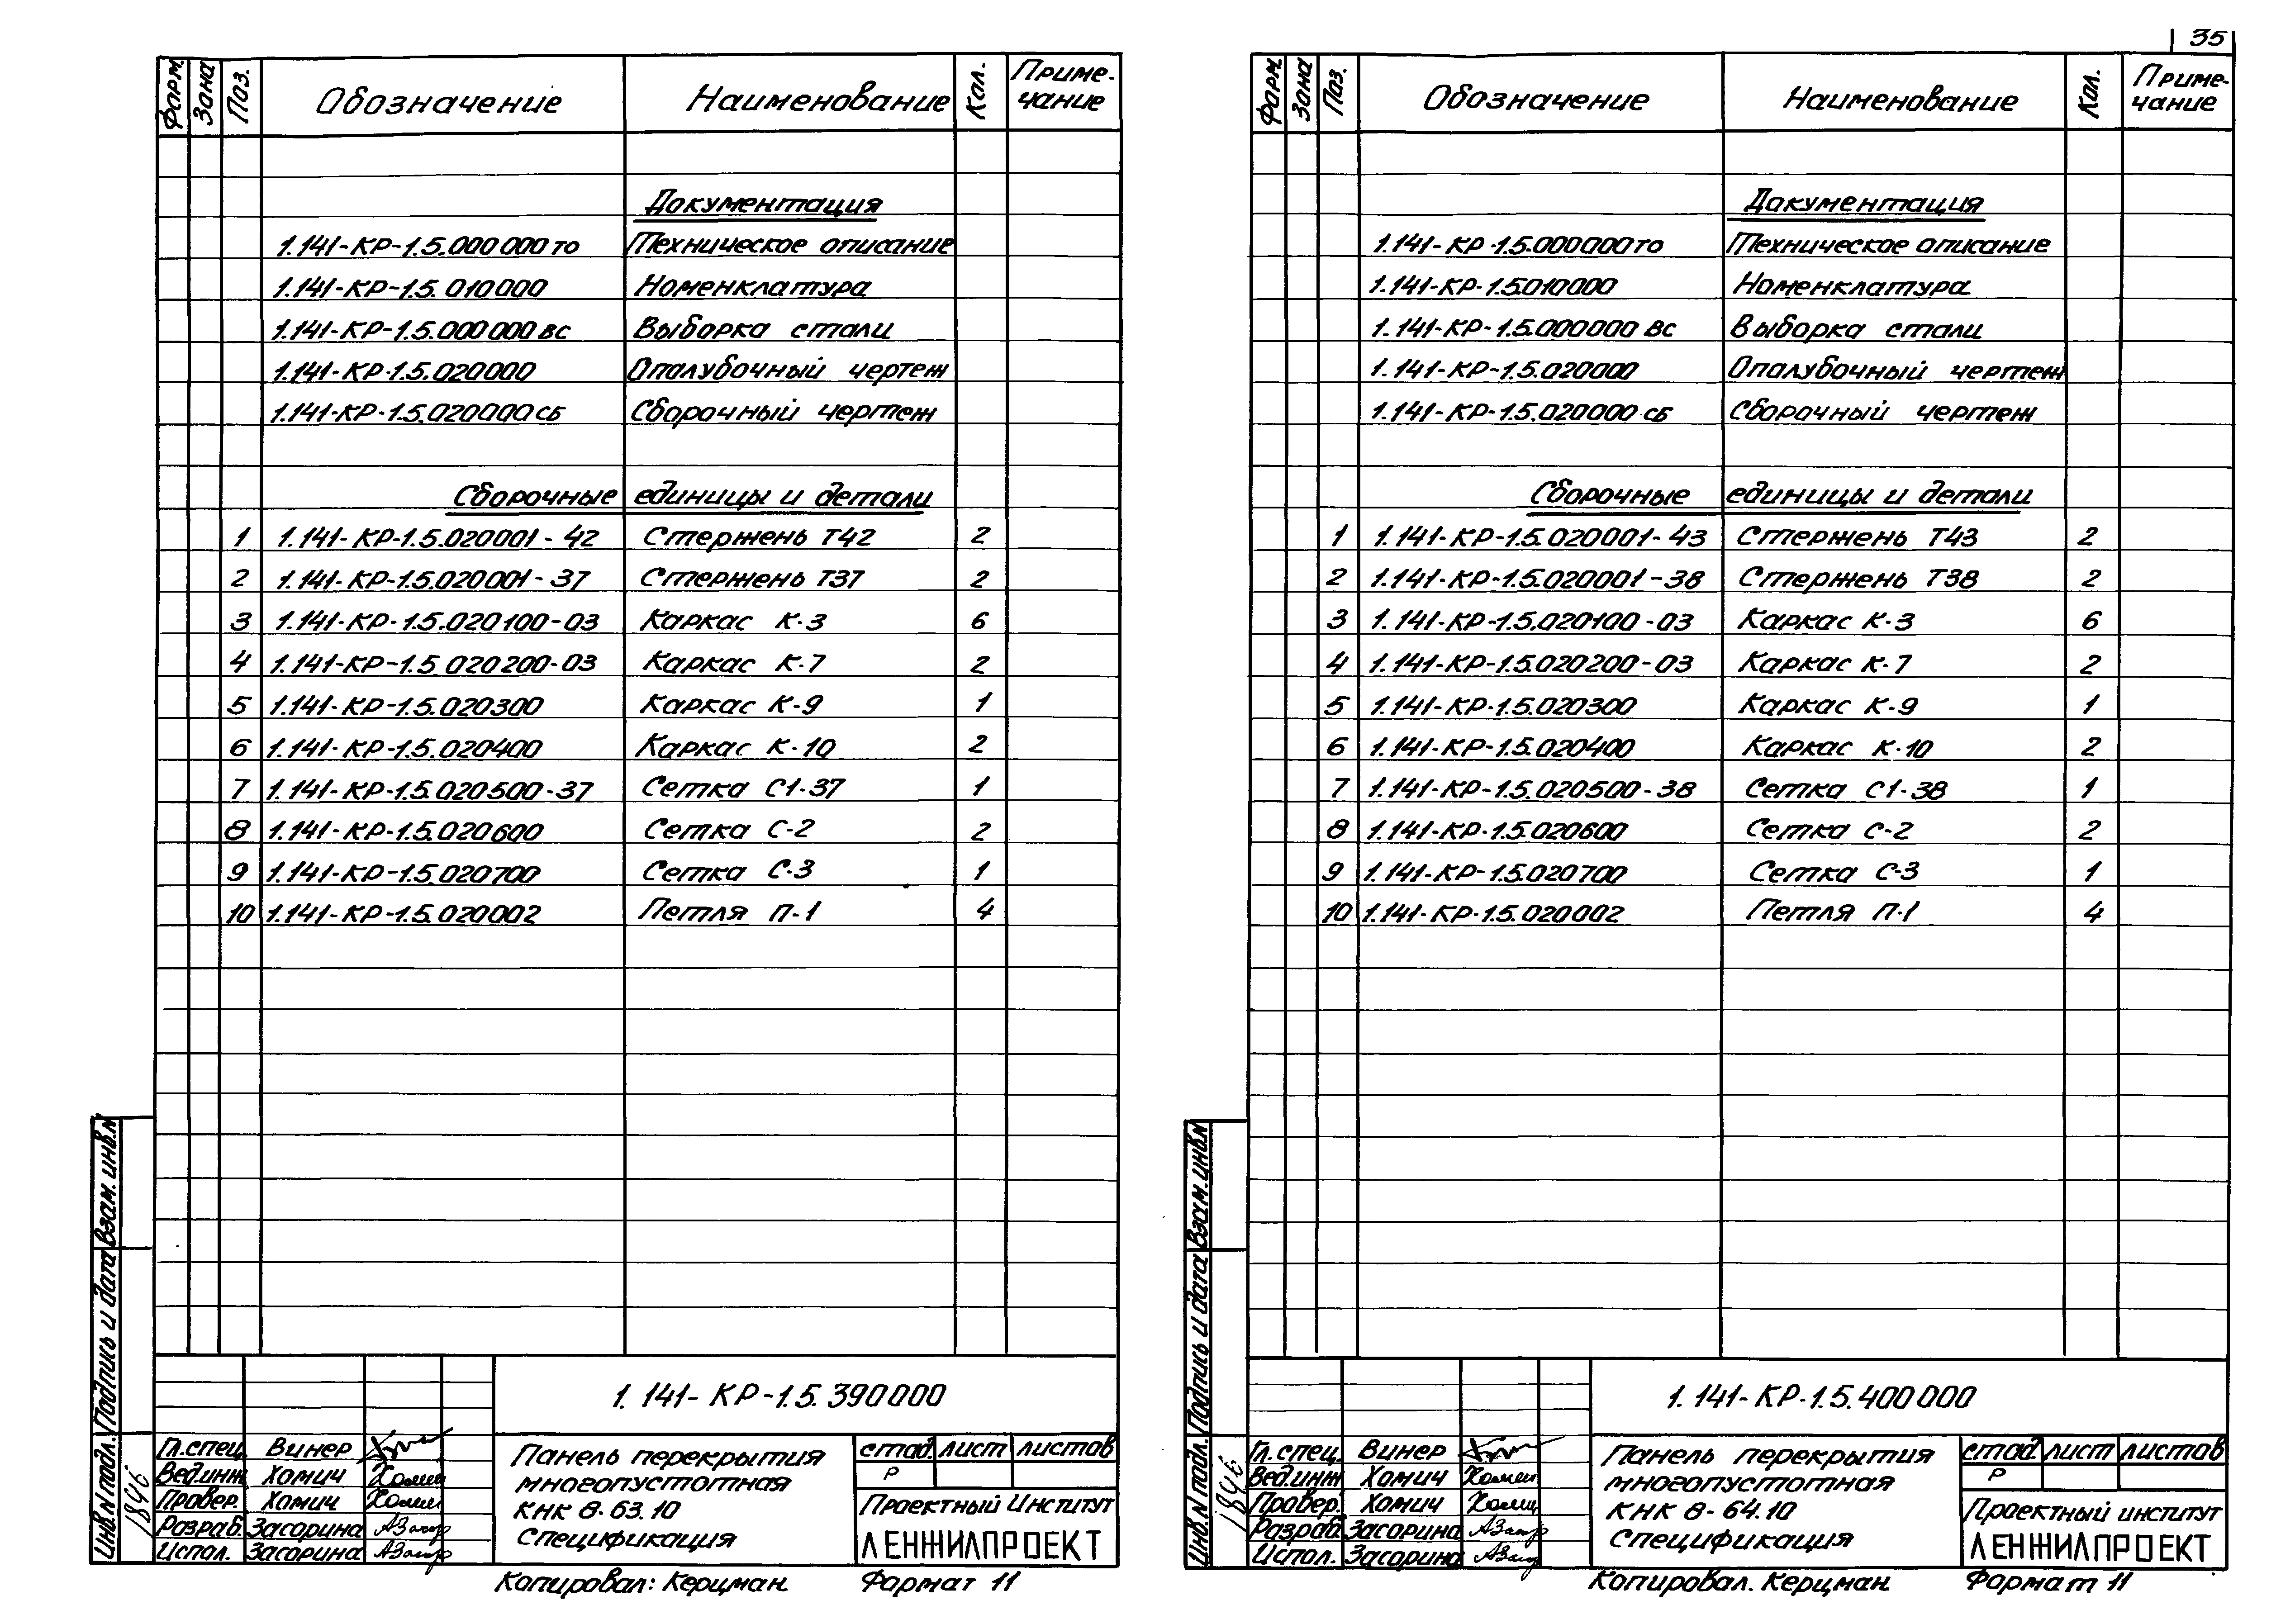 35
Форм. Зона Поз. Обозначение Наименование Кол. Приме-
чание
Документация
1.141-КР-1.5.000000то Техническое описание
1.141-КР-1.5.010000 Номенклатура
1.141-КР-1.5.000000вс Выборка стали
1.141-КР-1.5.020000 Опалубочный чертеж
1.141-КР-1.5.020000сб Сборочный чертеж
Сборочные единицы и детали
1 1.141-КР-1.5.020001-42 Стержень Т42 2
2 1.141-КР-1.5.020001-37 Стержень Т37 2
3 1.141-КР-1.5.020100-03 Каркас К-3 6
4 1.141-КР-1.5.020200-03 Каркас К-7 2
5 1.141-КР-1.5.020300 Каркас К-9 1
6 1.141-КР-1.5.020400 Каркас К-10 2
7 1.141-КР-1.5.020500-37 Сетка С1-37 1
8 1.141-КР-1.5.020600 Сетка С-2 2
9 1.141-КР-1.5.020700 Сетка С-3 1
10 1.141-КР-1.5.020002 Петля П-1 4
Взам. инв.N
Подпись и дата
Инв.N подл.
1846
1.141-КР-1.5.390000
Гл.спец. Винер
Вед.инж Хомич
Провер. Хомич
Разраб. Засорина
Испол. Засорина
Панель перекрытия
многопустотная
КНК 8-63.10
Спецификация
стад. лист листов
Р
Проектный Институт
ЛЕНЖИЛПРОЕКТ
Копировал: Керцман Формат 11
Форм. Зона Поз. Обозначение Наименование Кол. Приме-
чание
Документация
1.141-КР-1.5.000000то Техническое описание
1.141-КР-1.5.010000 Номенклатура
1.141-КР-1.5.000000вс Выборка стали
1.141-КР-1.5.020000 Опалубочный чертеж
1.141-КР-1.5.020000сб Сборочный чертеж
Сборочные единицы и детали
1 1.141-КР-1.5.020001-43 Стержень Т43 2
2 1.141-КР-1.5.020001-38 Стержень Т38 2
3 1.141-КР-1.5.020100-03 Каркас К-3 6
4 1.141-КР-1.5.020200-03 Каркас К-7 2
5 1.141-КР-1.5.020300 Каркас К-9 1
6 1.141-КР-1.5.020400 Каркас К-10 2
7 1.141-КР-1.5.020500-38 Сетка С1-38 1
8 1.141-КР-1.5.020600 Сетка С-2 2
9 1.141-КР-1.5.020700 Сетка С-3 1
10 1.141-КР-1.5.020002 Петля П-1 4
Взам. инв.N
Подпись и дата
Инв.N подл.
1846
1.141-КР-1.5.400000
Гл.спец. Винер
Вед.инж Хомич
Провер. Хомич
Разраб. Засорина
Испол. Засорина
Панель перекрытия
многопустотная
КНК 8-64.10
Спецификация
стад. лист листов
Р
Проектный институт
ЛЕНЖИЛПРОЕКТ
Копировал. Керцман Формат 11